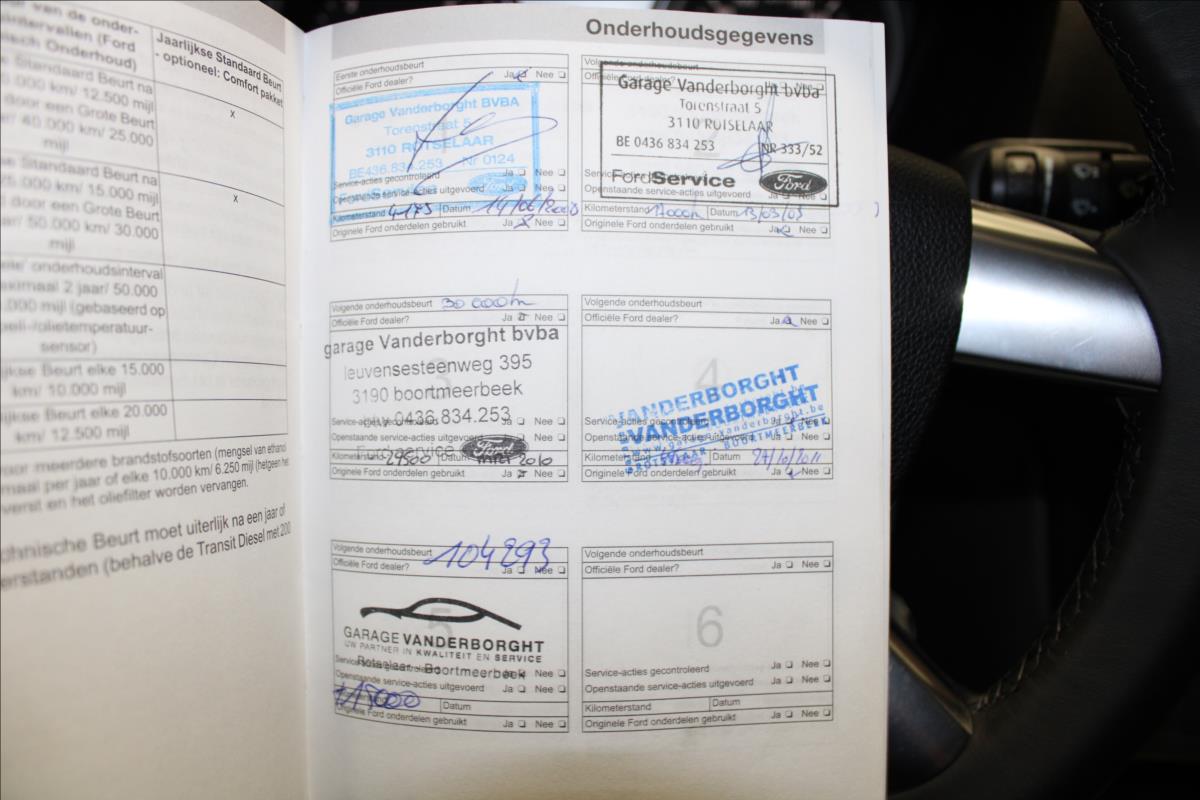 al van de onder-
intervallen (Ford
nisch Onderhoud)
Jaarlijkse Standaard Beurt
- optioneel: Comfort pakket
Standaard Beurt na
.000 km/ 12.500 mijl
door een Grote Beurt
ar/ 40.000 km/ 25.000
mijl
x
se Standaard Beurt na
25.000 km/ 15.000 mijl
door een Grote Beurt
ar/ 50.000 km/ 30.000
mijl
x
ele/ onderhoudsinterval
aximaal 2 jaar/ 50.000
.000 mijl (gebaseerd op
peil-/olietemperatuur-
sensor)
ijkse Beurt elke 15.000
km/ 10.000 mijl
lijkse Beurt elke 20.000
km/ 12.500 mijl
oor meerdere brandstofsoorten (mengsel van ethanol
maal per jaar of elke 10.000 km/ 6.250 mijl (hetgeen het
versit en het oliefilter worden vervangen.
chnische Beurt moet uiterlijk na een jaar of
erstanden (behalve de Transit Diesel met 200
Onderhoudsgegevens
Eerste onderhoudsbeurt
Officiële Ford dealer? Ja Nee
Garage Vanderborght BVBA
Torenstraat 5
3110 ROTSELAAR
BE436.834.253 Nr 0124
Service-acties gecontroleerd Ja Nee
Openstaande service-acties uitgevoerd Ja Nee
Kilometerstand 4175 Datum 14/06/2008
Originele Ford onderdelen gebruikt Ja Nee
Volgende onderhoudsbeurt
Officiële Ford dealer?
Garage Vanderborght bvba
Torenstraat 5
3110 ROTSELAAR
BE 0436 834 253 NR 333/52
FordService Ford
Openstaande service-acties uitgevoerd Ja Nee
Kilometerstand 17000h Datum 13/03/09
Originele Ford onderdelen gebruikt Ja Nee
Volgende onderhoudsbeurt 30 000h
Officiële Ford dealer? Ja Nee
3
garage Vanderborght bvba
leuvensesteenweg 395
3190 boortmeerbeek
btw 0436.834.253
Service-acties gecontroleerd Ja Nee
Openstaande service-acties uitgevoerd Ja Nee
Ford
Kilometerstand 29500 Datum 2010
Originele Ford onderdelen gebruikt Ja Nee
Volgende onderhoudsbeurt
Officiële Ford dealer? Ja Nee
4
VANDERBORGHT
VANDERBORGHT
www.garagevanderborght.be
ROTSELAAR - BOORTMEERBEEK
Service-acties gecontroleerd Ja Nee
Openstaande service-acties uitgevoerd Ja Nee
Kilometerstand Datum 27/10/2011
Originele Ford onderdelen gebruikt Ja Nee
Volgende onderhoudsbeurt 104293
Officiële Ford dealer? Ja Nee
5
GARAGE VANDERBORGHT
UW PARTNER IN KWALITEIT EN SERVICE
Rotselaar - Boortmeerbeek
Service-acties gecontroleerd Ja Nee
Openstaande service-acties uitgevoerd Ja Nee
118000 Datum
Originele Ford onderdelen gebruikt Ja Nee
Volgende onderhoudsbeurt
Officiële Ford dealer? Ja Nee
6
Service-acties gecontroleerd Ja Nee
Openstaande service-acties uitgevoerd Ja Nee
Kilometerstand Datum
Originele Ford onderdelen gebruikt Ja Nee